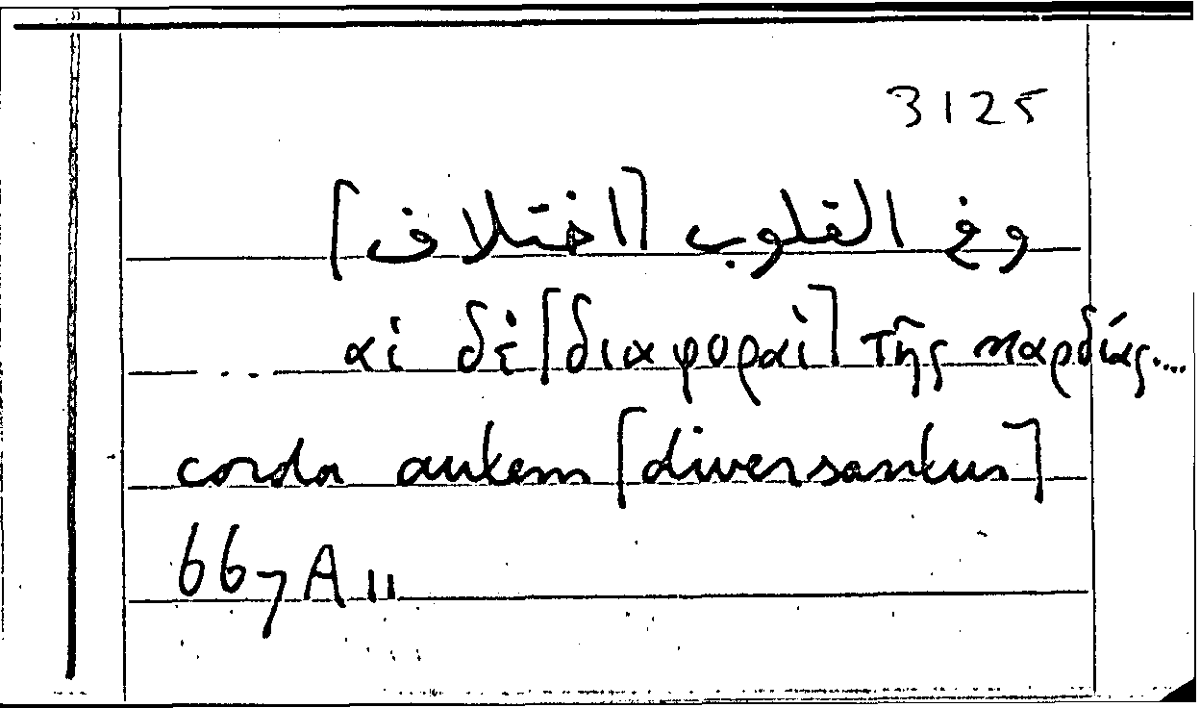 3125
وفي القلوب [اختلاف]
αἱ δὲ [διαφοραὶ] τῆς καρδίας....
corda autem [diversantur]
667A11